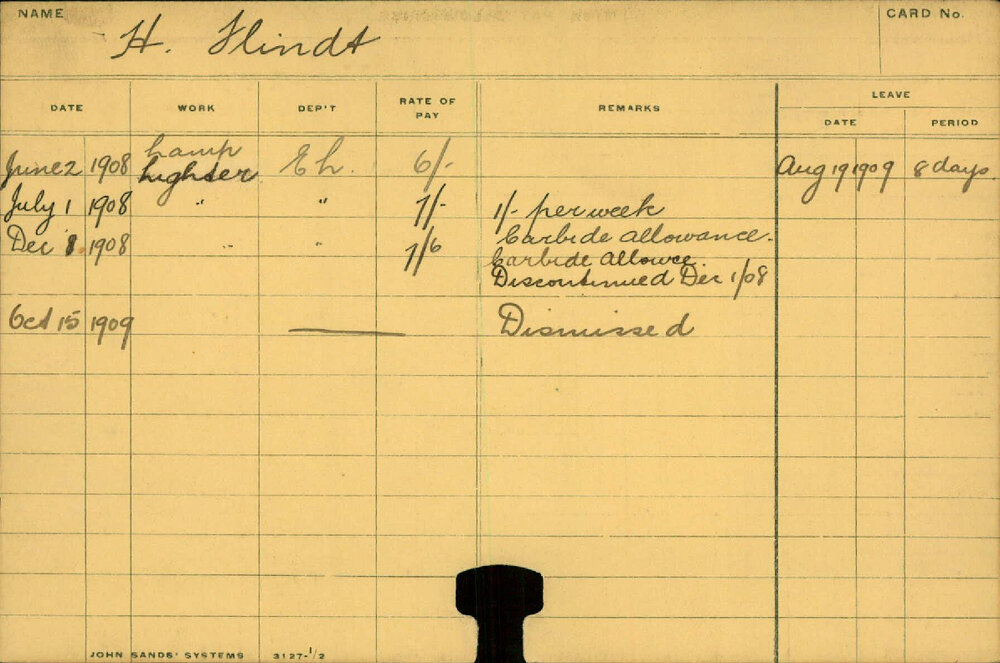 NAME
H. Flindt
CARD No.
DATE WORK DEP'T RATE OF PAY REMARKS LEAVE
DATE PERIOD
June 2 1908 Lamp Lighter E L. 6/- Aug 19 1909 8 days.
July 1 1908 " " 7/- 1/- per week
Carbide allowance.
Dec 8. 1908 " " 7/6 Carbide allowce.
Discontinued Dec 1/08
Oct 15 1909 Dismissed
JOHN SANDS' SYSTEMS 3127-1/2